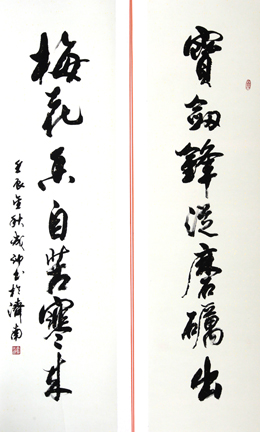 寶劍鋒從磨礪出
梅花香自苦寒來
壬辰金秋成沖書於濟南